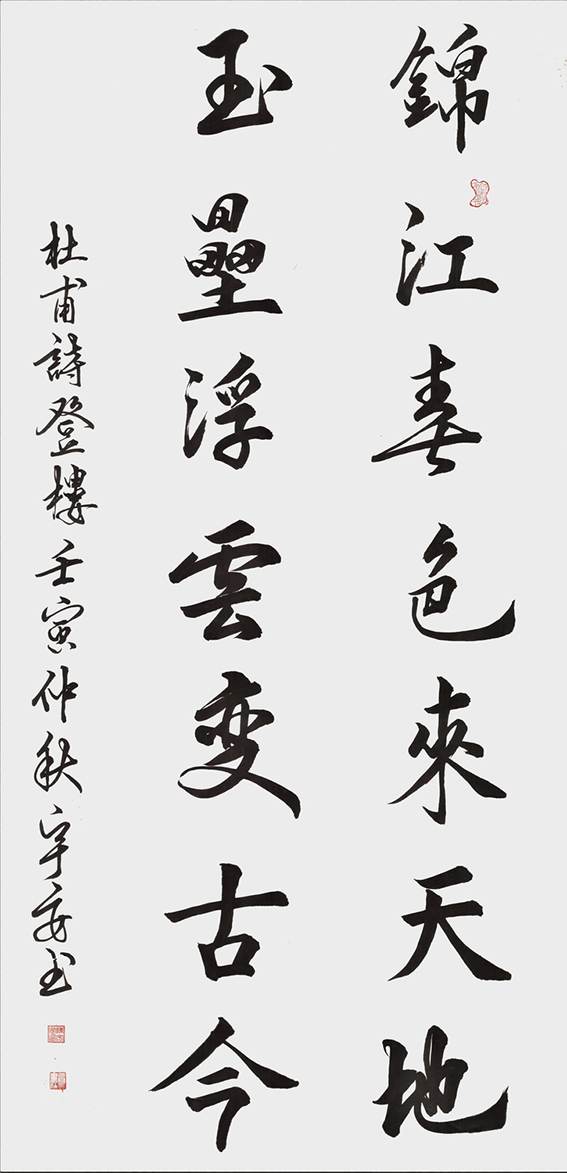 錦江春色來天地
玉壘浮雲变古今
杜甫詩登樓壬寅仲秋宇安书